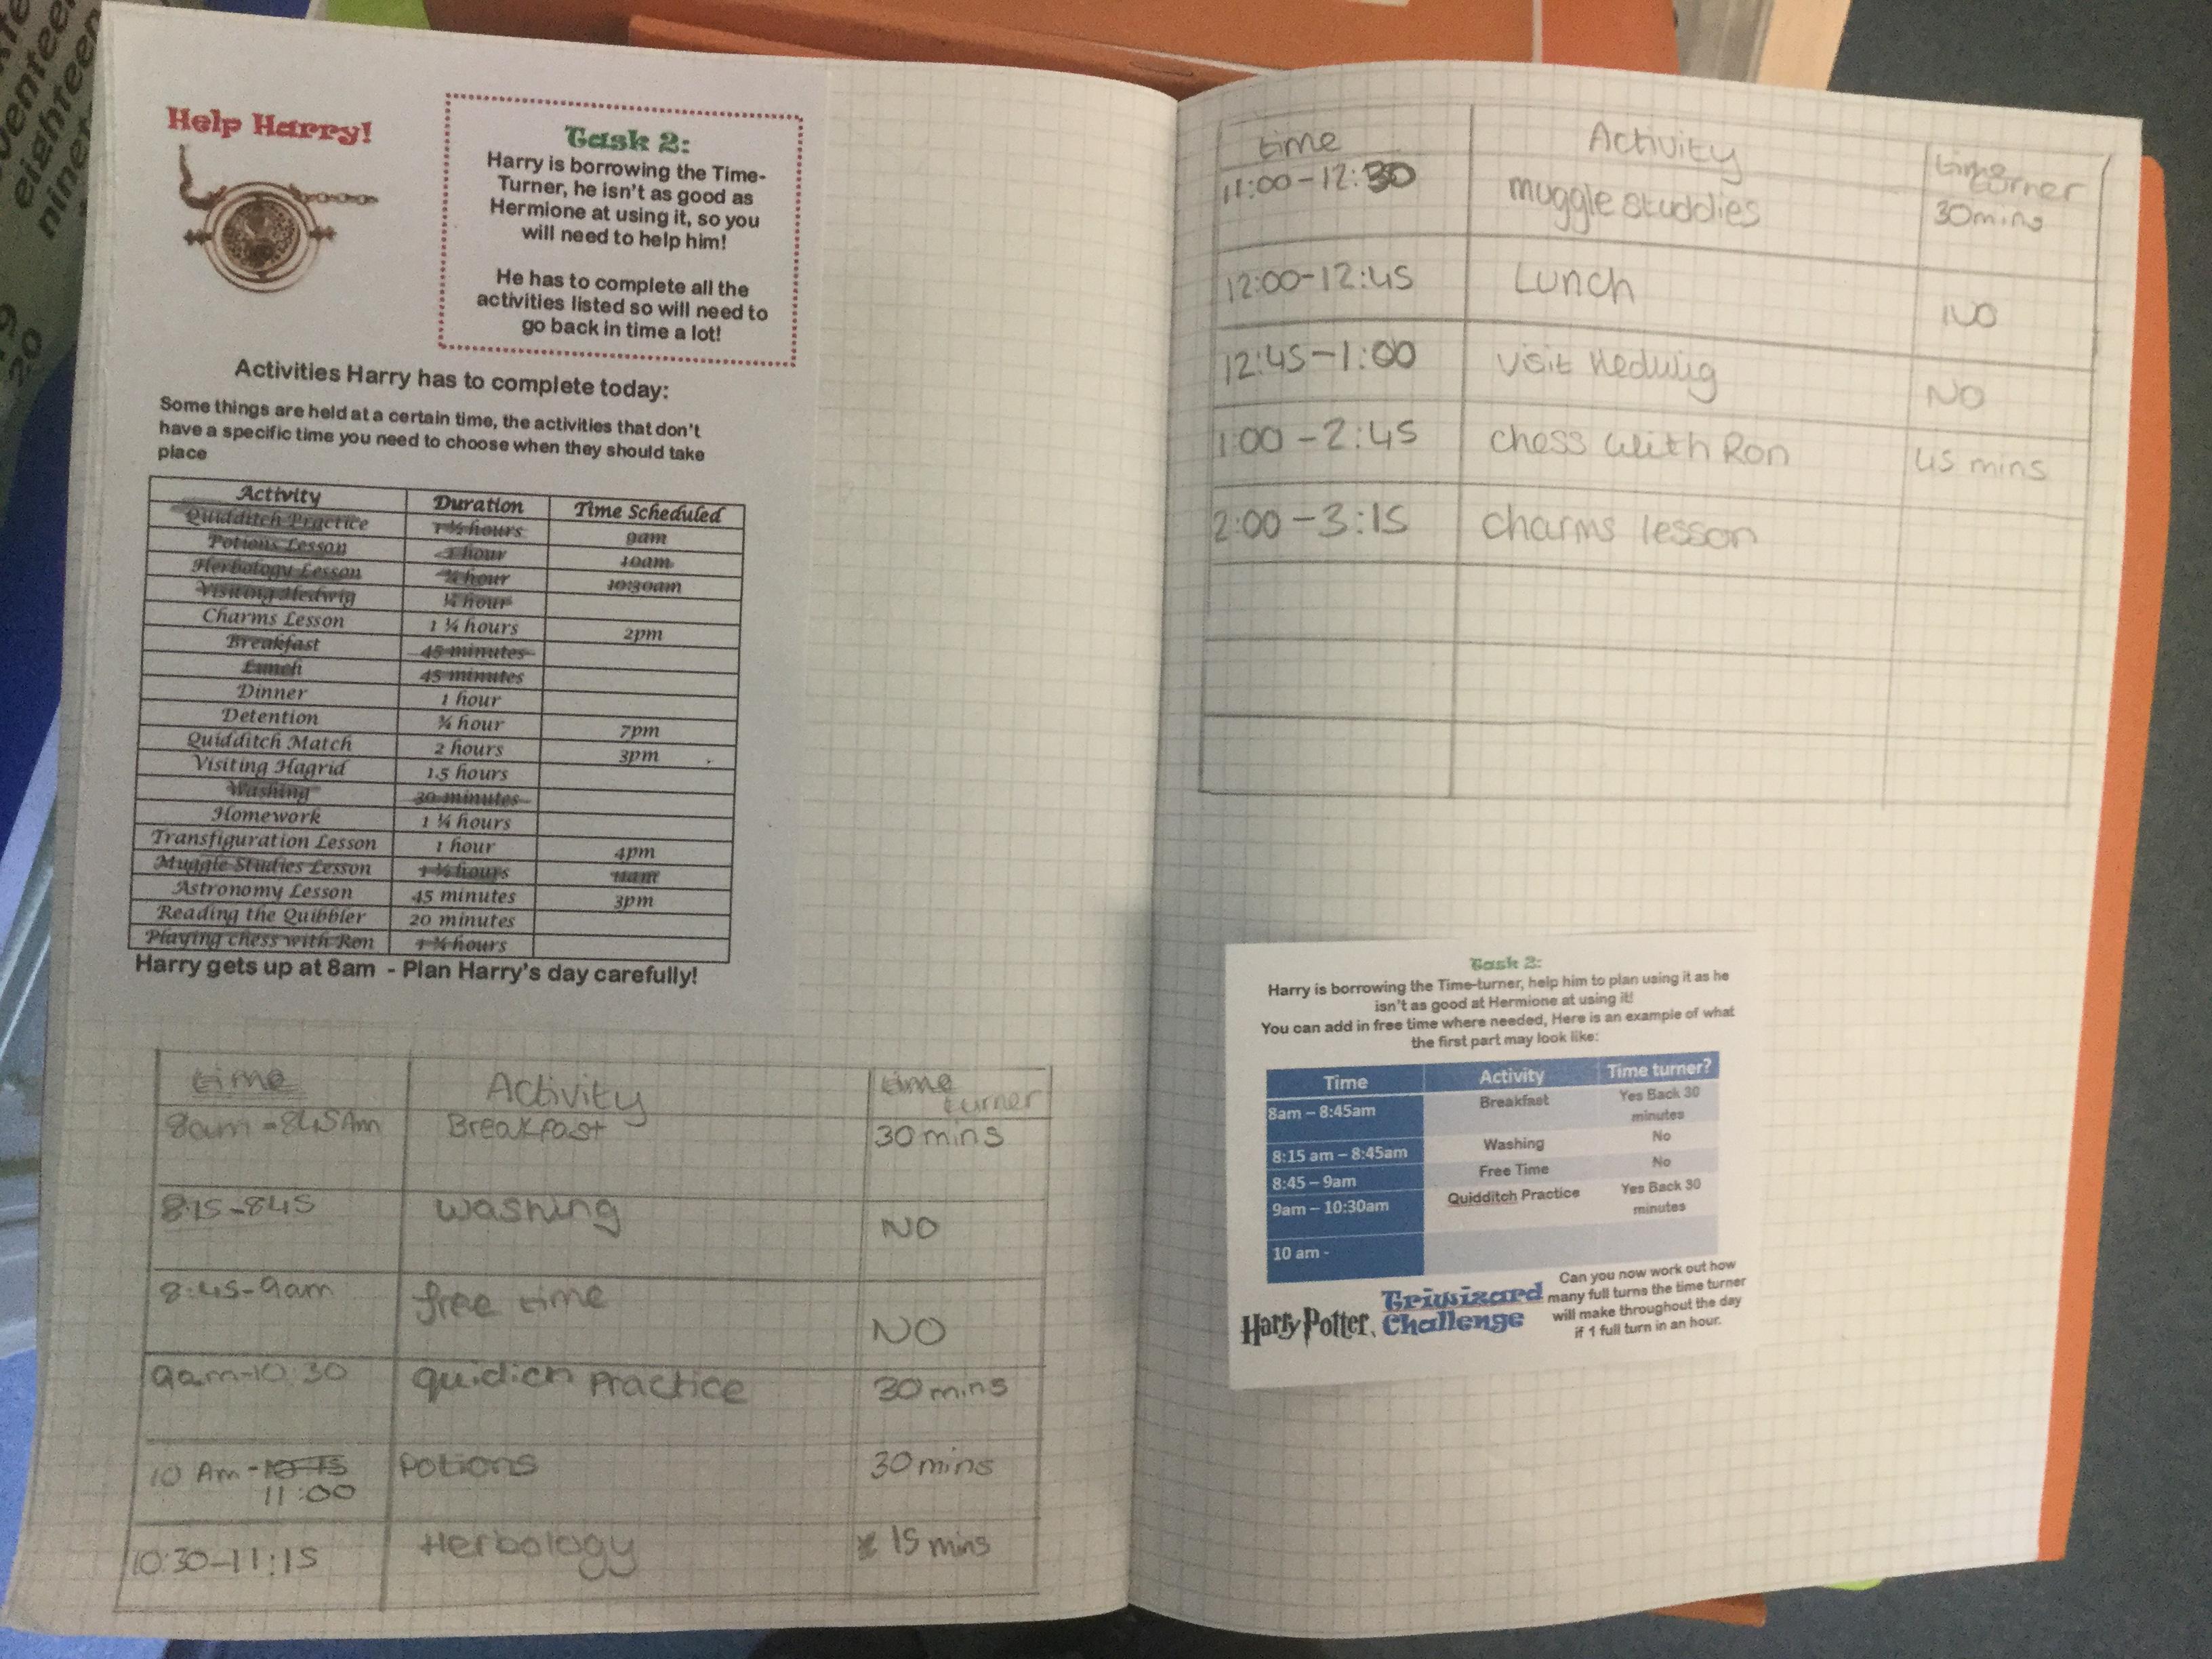 eighteen
19
20
Help Harry!
Task 2:
Harry is borrowing the Time-
Turner, he isn't as good as
Hermione at using it, so you
will need to help him!
He has to complete all the
activities listed so will need to
go back in time a lot!
Activities Harry has to complete today:
Some things are held at a certain time, the activities that don't
have a specific time you need to choose when they should take
place
Activity Duration Time Scheduled
Quidditch Practice 1 ½ hours 9am
Potions Lesson 1 hour 10am
Herbology Lesson ¾ hour 10:30am
Visiting Hedwig ¼ hour
Charms Lesson 1 ¼ hours 2pm
Breakfast 45 minutes
Lunch 45 minutes
Dinner 1 hour
Detention ¾ hour 7pm
Quidditch Match 2 hours 3pm
Visiting Hagrid 1.5 hours
Washing 30 minutes
Homework 1 ¼ hours
Transfiguration Lesson 1 hour 4pm
Muggle Studies Lesson 1 ½ hours 11am
Astronomy Lesson 45 minutes 3pm
Reading the Quibbler 20 minutes
Playing chess with Ron 1 ¾ hours
Harry gets up at 8am - Plan Harry's day carefully!
time Activity time turner
8am-845Am Breakfast 30 mins
8:15-845 washing NO
8:45-9am free time NO
9am-10:30 quidich Practice 30 mins
10 Am-10:15 Potions 30 mins
11:00
10:30-11:15 Herbology 15 mins
time Activity time turner
11:00-12:30 muggle studdies 30 mins
12:00-12:45 Lunch NO
12:45-1:00 visit Hedwig NO
1:00-2:45 chess with Ron 45 mins
2:00-3:15 charms lesson
Task 2:
Harry is borrowing the Time-turner, help him to plan using it as he
isn't as good at Hermione at using it!
You can add in free time where needed, Here is an example of what
the first part may look like:
Time Activity Time turner?
8am – 8:45am Breakfast Yes Back 30
minutes
8:15 am – 8:45am Washing No
8:45 – 9am Free Time No
9am – 10:30am Quidditch Practice Yes Back 30
minutes
10 am -
Harry Potter, Triwizard
Challenge
Can you now work out how
many full turns the time turner
will make throughout the day
if 1 full turn in an hour.